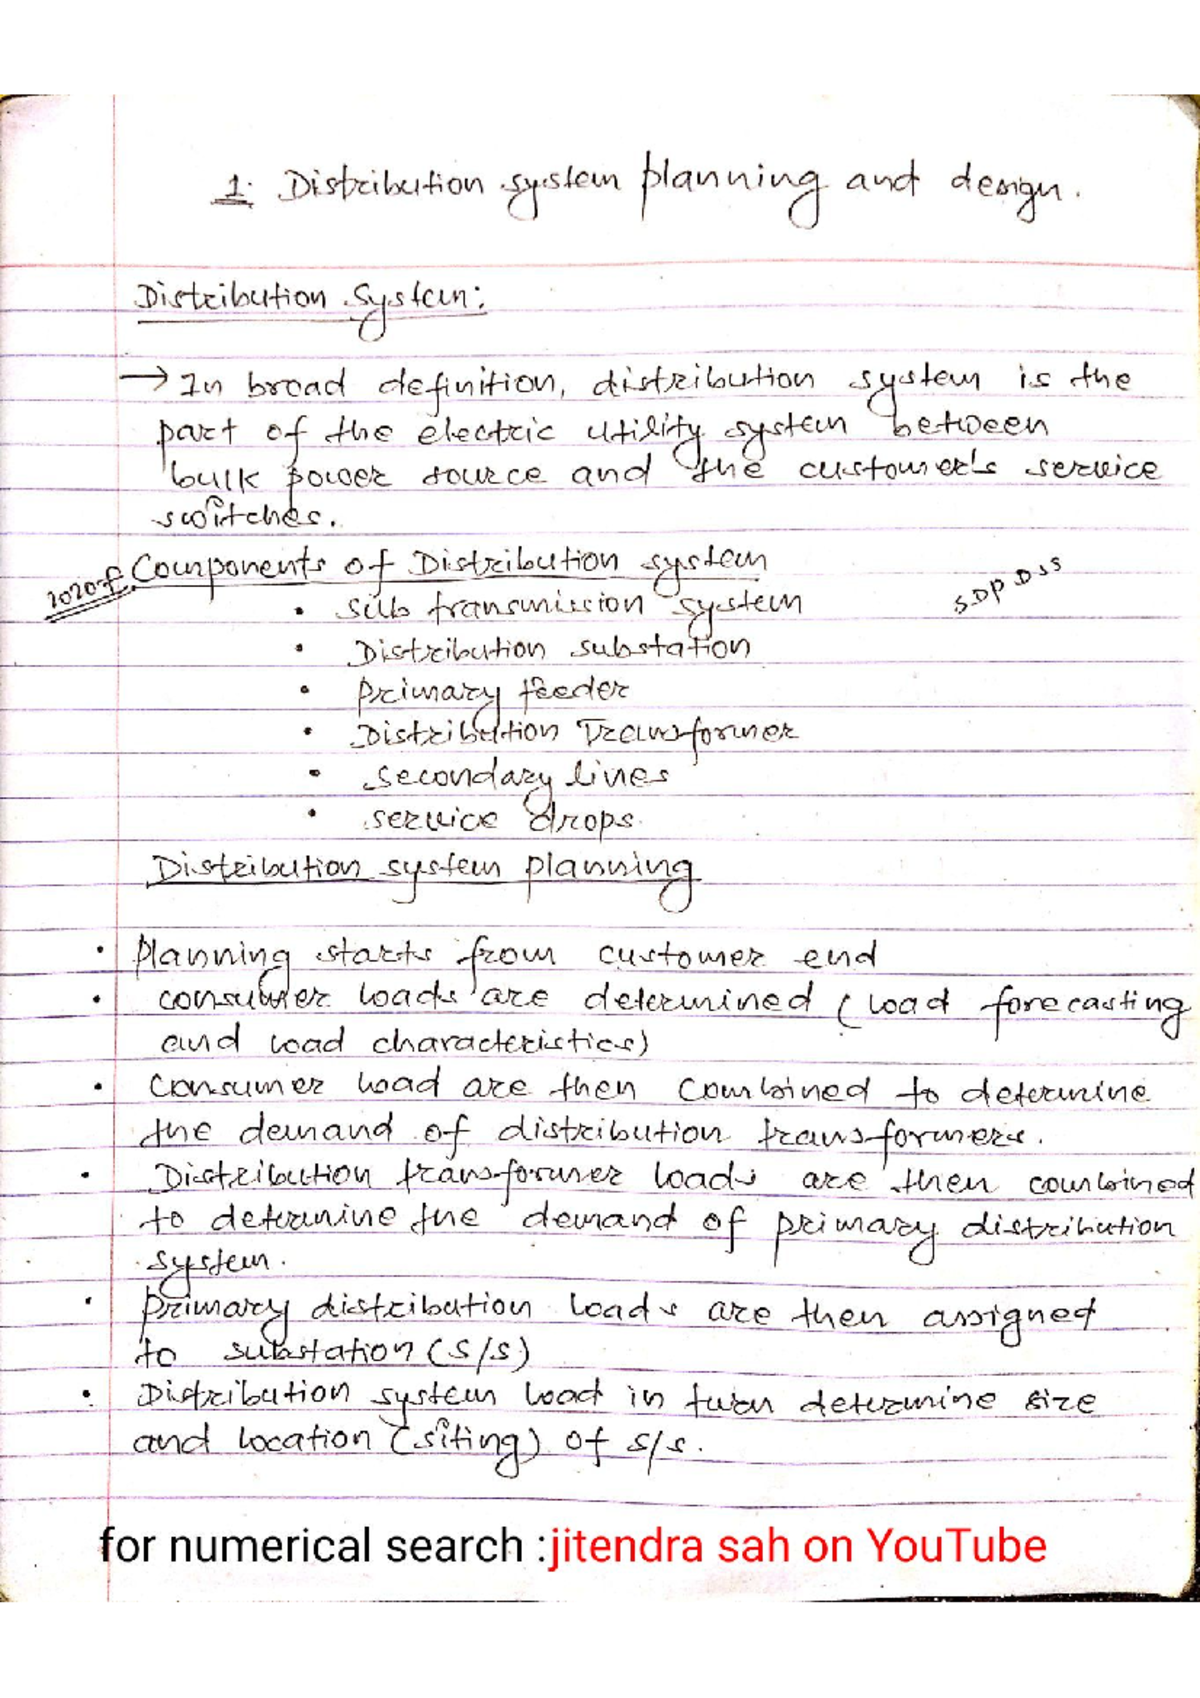 1. Distribution system planning and design.
Distribution System:
→ In broad definition, distribution system is the
part of the electric utility system between
bulk power source and the customer's service
switches.
2020-f Components of Distribution system
SDP DSS
• Sub transmission system
• Distribution substation
• primary feeder
• Distribution Transformer
• secondary lines
• service drops.
Distribution system planning
• Planning starts from customer end
• consumer loads are determined (load forecasting
and load characteristics)
• Consumer load are then combined to determine
the demand of distribution transformers.
• Distribution transformer loads are then combined
to determine the demand of primary distribution
system.
• primary distribution loads are then assigned
to substation (s/s)
• Distribution system load in turn determine size
and location (siting) of s/s.
for numerical search :jitendra sah on YouTube